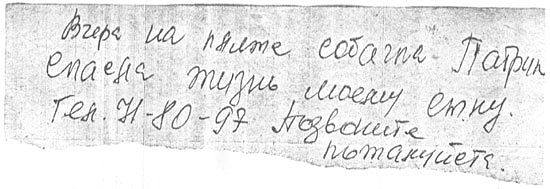 Вчера на пляже собачка Патрик
спасла жизнь моему сыну.
Тел. 71-80-97 Позвоните
пожалуйста.